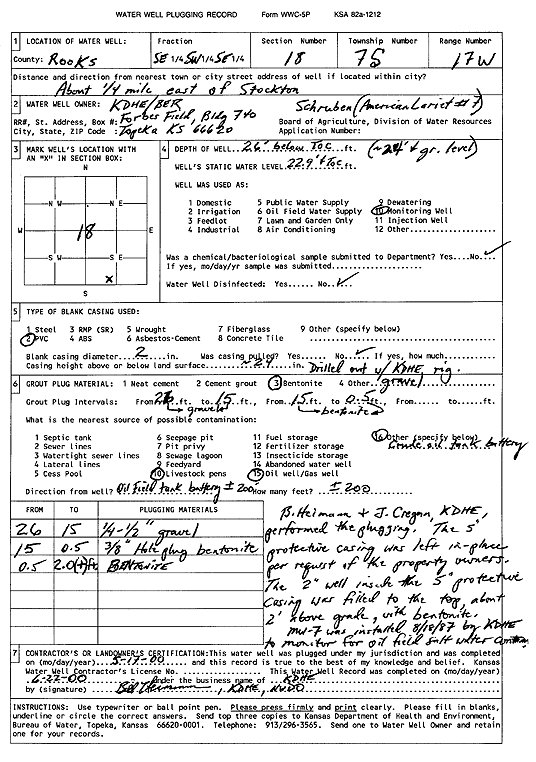 WATER WELL PLUGGING RECORD Form WWC-5P KSA 82a-1212
1 LOCATION OF WATER WELL: Fraction Section Number Township Number Range Number
County: Rooks SE 1/4 SW 1/4 SE 1/4 18 7S 17W
Distance and direction from nearest town or city street address of well if located within city?
About 1/4 mile east of Stockton
2 WATER WELL OWNER: KDHE/BER Schruben (American Lariet #7)
RR#, St. Address, Box #: Forbes Field, Bldg 740 Board of Agriculture, Division of Water Resources
City, State, ZIP Code : Topeka KS 66620 Application Number:
3 MARK WELL'S LOCATION WITH AN "X" IN SECTION BOX:
N
NW NE
W 18 E
SW SE
X
S
4 DEPTH OF WELL 26' below TOC ft. (~24' + gr. level)
WELL'S STATIC WATER LEVEL 22.9' + TOC ft.
WELL WAS USED AS:
1 Domestic 5 Public Water Supply 9 Dewatering
2 Irrigation 6 Oil Field Water Supply 10 Monitoring Well
3 Feedlot 7 Lawn and Garden Only 11 Injection Well
4 Industrial 8 Air Conditioning 12 Other
Was a chemical/bacteriological sample submitted to Department? Yes.... No..✓
If yes, mo/day/yr sample was submitted
Water Well Disinfected: Yes...... No..✓
5 TYPE OF BLANK CASING USED:
1 Steel 3 RMP (SR) 5 Wrought 7 Fiberglass 9 Other (specify below)
2 PVC 4 ABS 6 Asbestos-Cement 8 Concrete Tile
Blank casing diameter 2 in. Was casing pulled? Yes...... No ✓ If yes, how much
Casing height above or below land surface ~24 in. Drilled out w/ KDHE rig.
6 GROUT PLUG MATERIAL: 1 Neat cement 2 Cement grout 3 Bentonite 4 Other gravel
Grout Plug Intervals: From 26 ft. to 15 ft., From 15 ft. to 0.5 ft., From...... to......ft.
gravel bentonite
What is the nearest source of possible contamination:
1 Septic tank 6 Seepage pit 11 Fuel storage 16 Other (specify below)
2 Sewer lines 7 Pit privy 12 Fertilizer storage Crude oil tank battery
3 Watertight sewer lines 8 Sewage lagoon 13 Insecticide storage
4 Lateral lines 9 Feedyard 14 Abandoned water well
5 Cess Pool 10 Livestock pens 15 Oil well/Gas well
Direction from well? Oil field tank battery ± 200 How many feet? ± 200
FROM TO PLUGGING MATERIALS
26 15 1/4-1/2" gravel
15 0.5 3/8" Hole plug bentonite
0.5 2.0(+)ft BENTONITE
B. Heimann & J. Cregan, KDHE,
performed the plugging. The 5"
protective casing was left in-place
per request of the property owners.
The 2" well inside the 5" protective
casing was filled to the top, about
2' above grade, with bentonite.
MW-7 was installed 8/18/87 by KDHE
to monitor for oil field salt water
7 CONTRACTOR'S OR LANDOWNER'S CERTIFICATION: This water well was plugged under my jurisdiction and was completed
on (mo/day/year) 5-17-00 and this record is true to the best of my knowledge and belief. Kansas
Water Well Contractor's License No. This Water Well Record was completed on (mo/day/year)
6-22-00 under the business name of KDHE
by (signature) Bill Heimann, KDHE, NWDO
INSTRUCTIONS: Use typewriter or ball point pen. Please press firmly and print clearly. Please fill in blanks,
underline or circle the correct answers. Send top three copies to Kansas Department of Health and Environment,
Bureau of Water, Topeka, Kansas 66620-0001. Telephone: 913/296-3565. Send one to Water Well Owner and retain
one for your records.